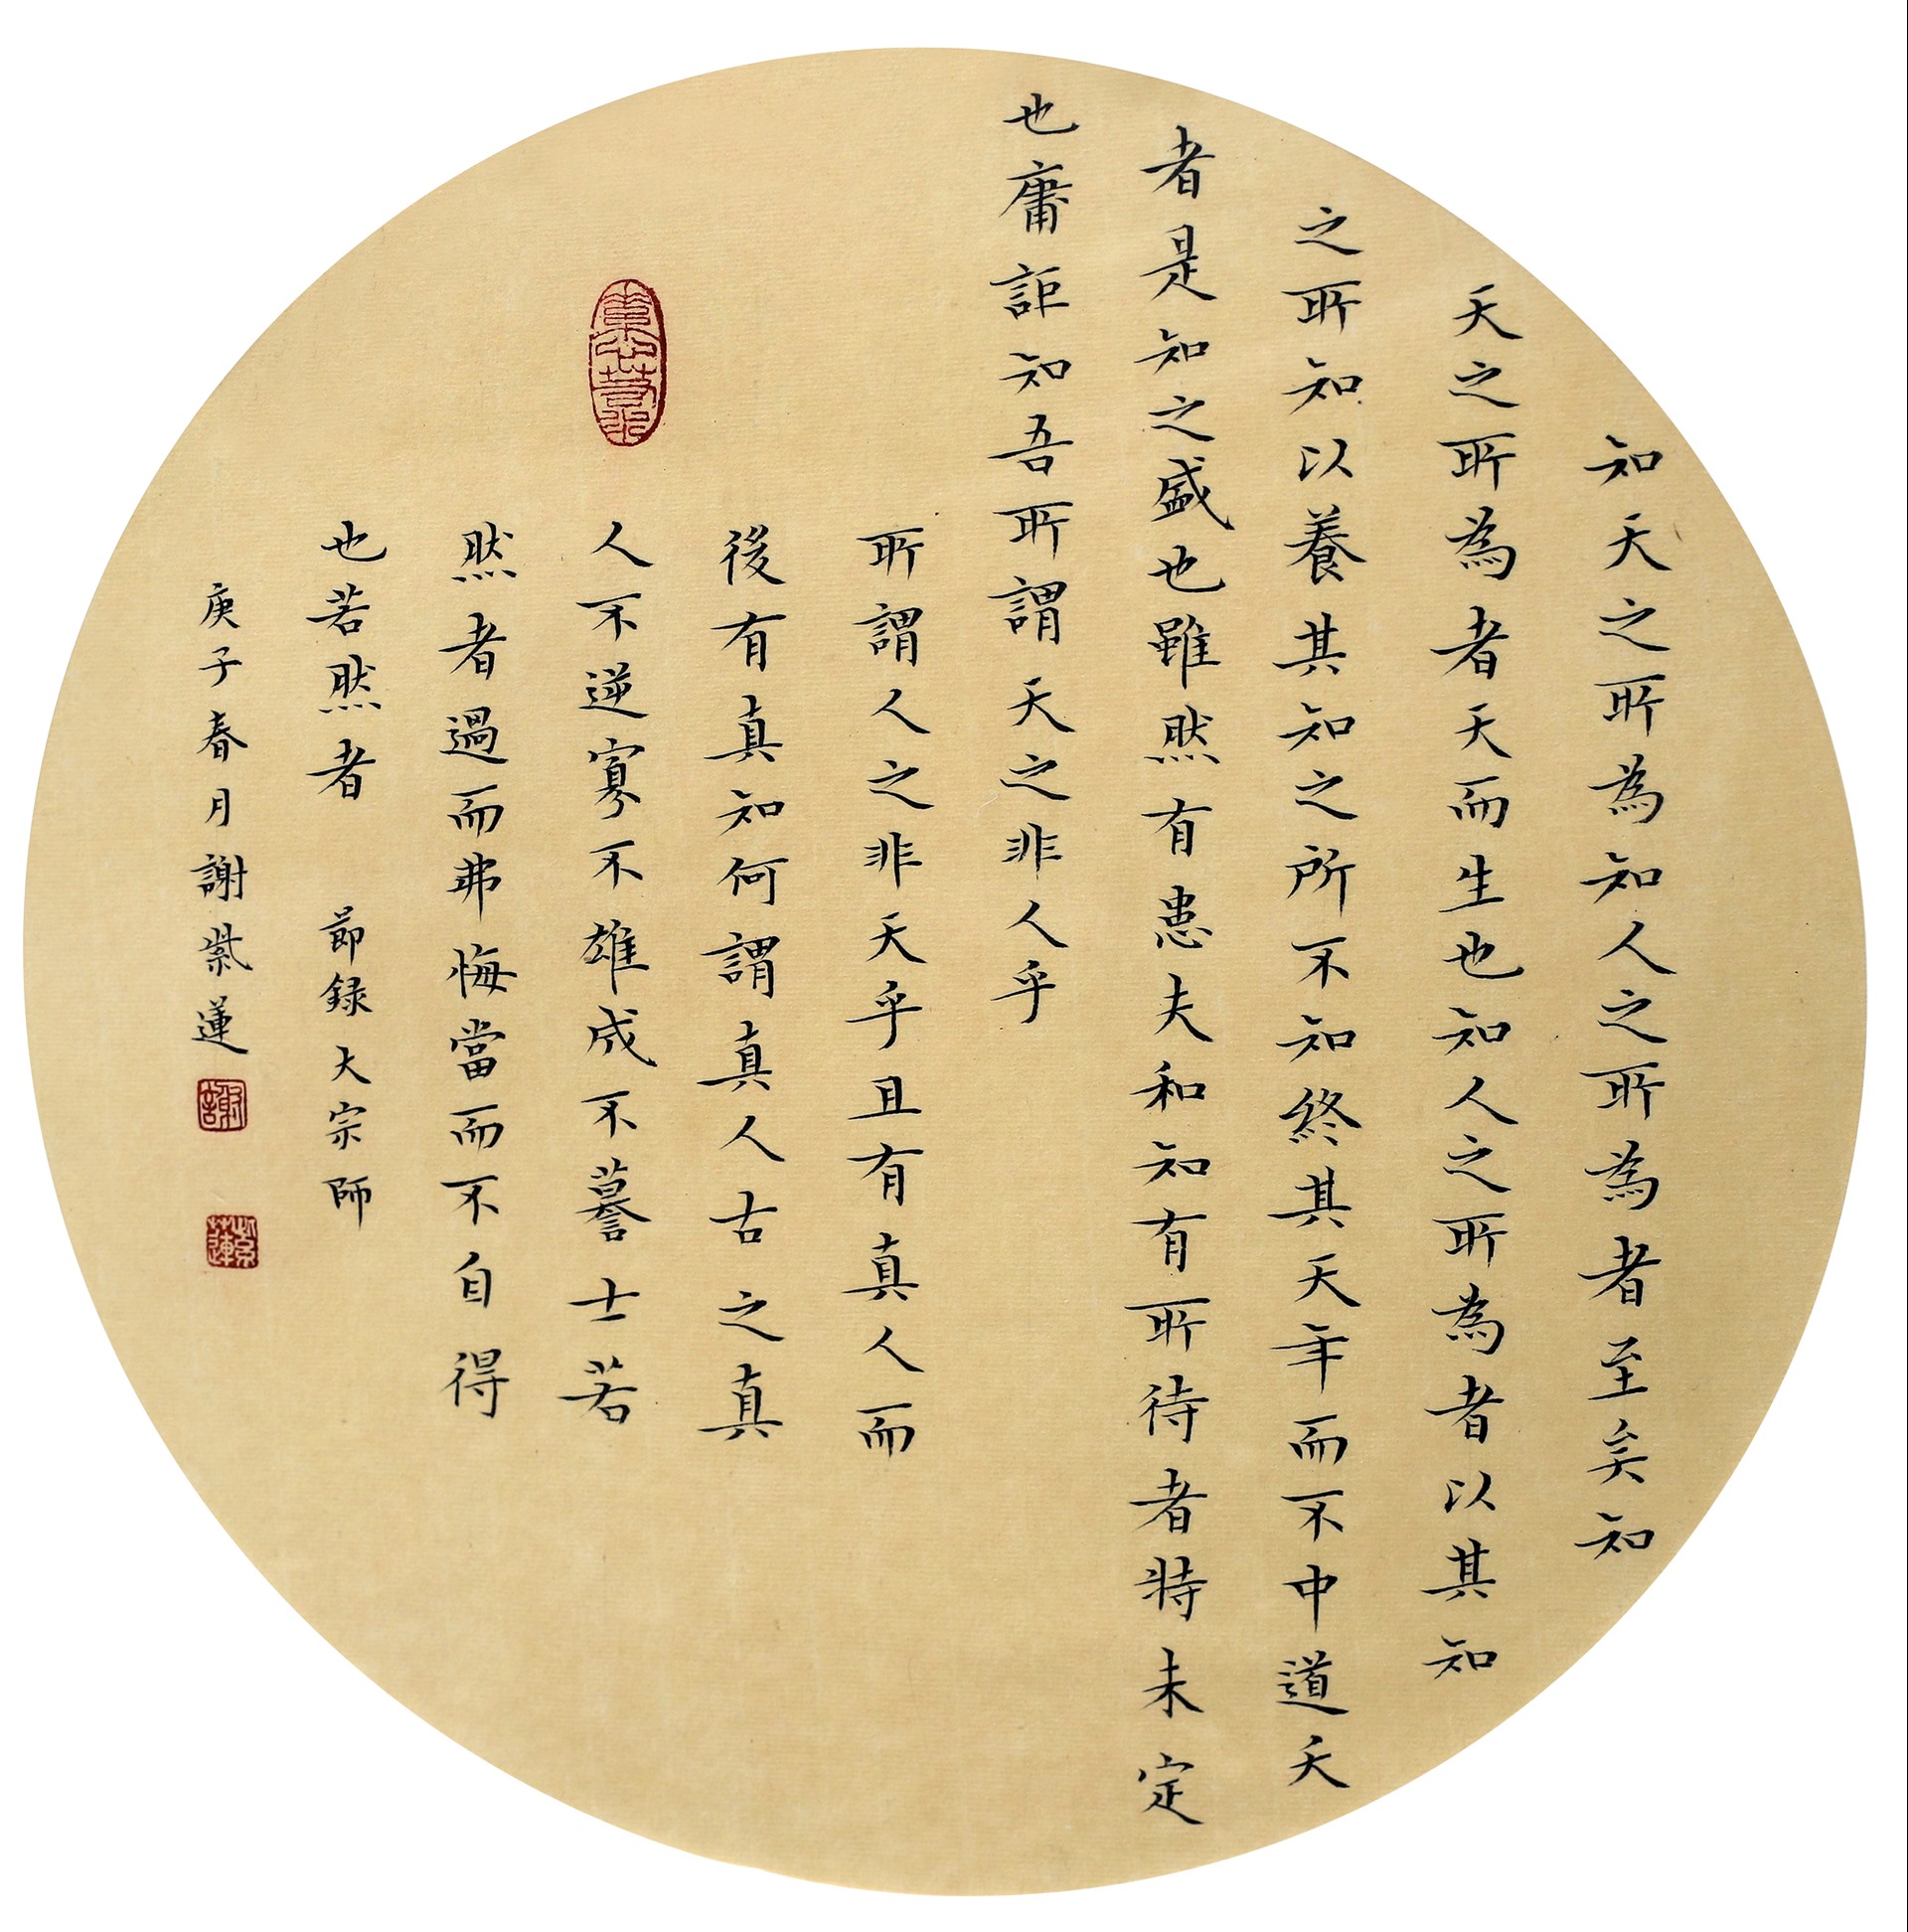 知天之所為知人之所為者至矣知
天之所為者天而生也知人之所為者以其知
之所知以養其知之所不知終其天年而不中道夭
者是知之盛也雖然有患夫和知有所待者特未定
也庸詎知吾所謂天之非人乎
所謂人之非天乎且有真人而
後有真知何謂真人古之真
人不逆寡不雄成不謩士若
然者過而弗悔當而不自得
也若然者 節録大宗師
庚子春月謝紫蓮
謝
紫蓮